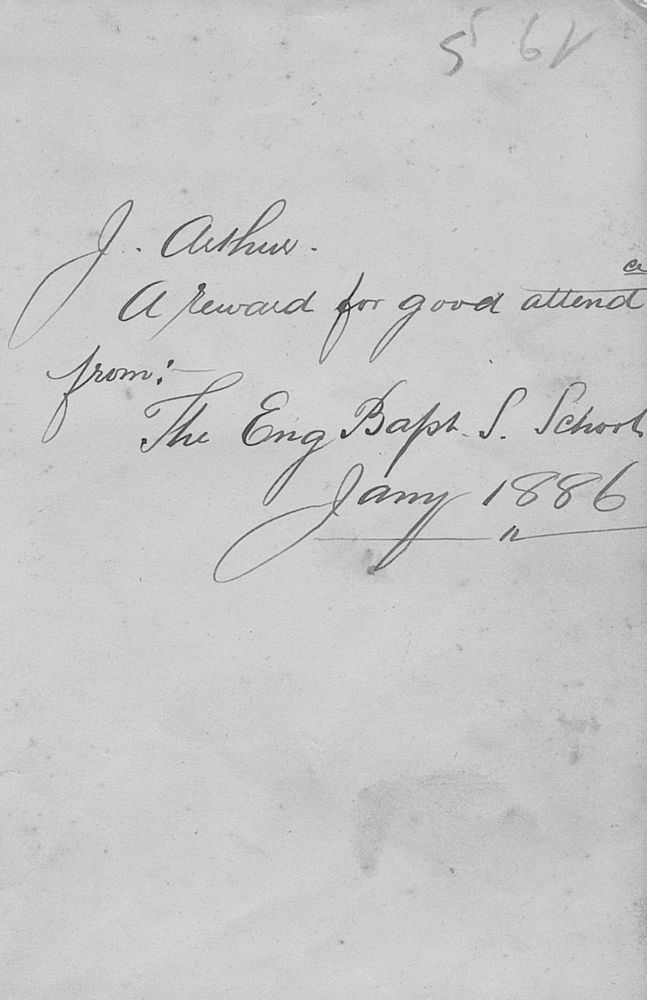 5 62
J. Arthur.
A reward for good attendce
from:-
The Eng Bapt. S. School
Jany 1886
"